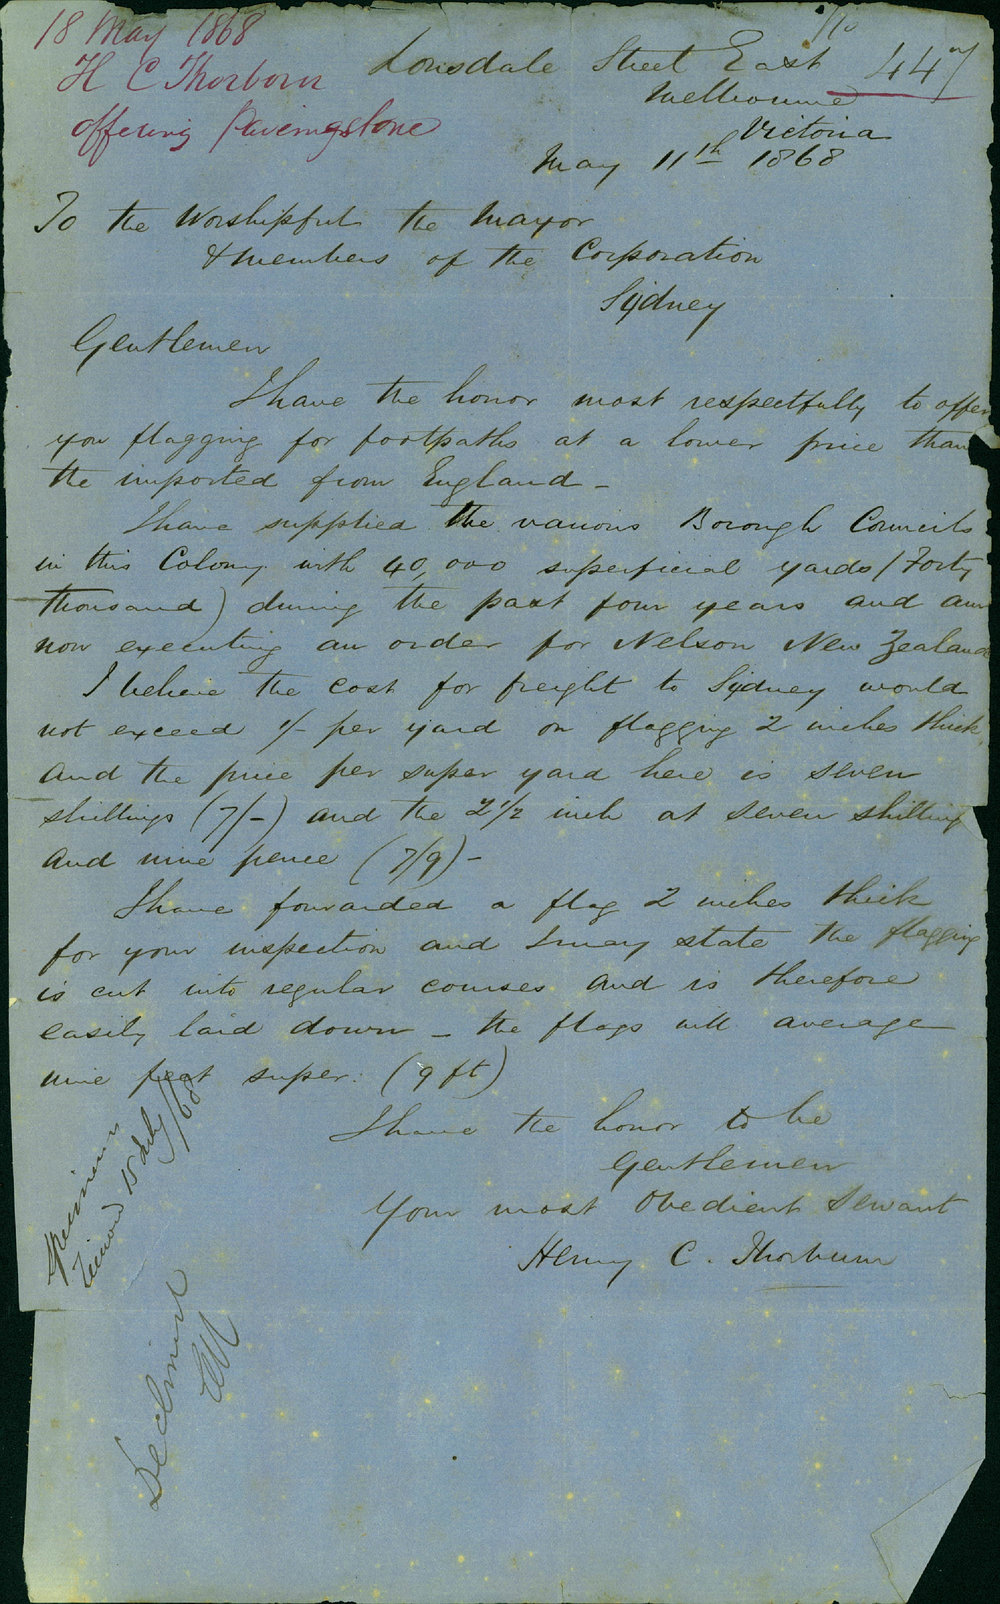 18 May 1868
H C Thorborn
offering Pavingstone
No
447
Lonsdale Street East
Melbourne
Victoria
May 11th 1868
To the Worshipful the Mayor
& members of the Corporation
Sydney
Gentlemen
I have the honor most respectfully to offer
you flagging for footpaths at a lower price than
the imported from England -
I have supplied the various Borough Councils
in this Colony with 40,000 superficial yards (Forty
thousand) during the past four years and am
now executing an order for Nelson New Zealand
I believe the cost for freight to Sydney would
not exceed 1/- per yard on flagging 2 inches thick
and the price per super yard here is seven
shillings (7/-) and the 2 1/2 inch at seven shilling
and nine pence (7/9) -
I have forwarded a flag 2 inches thick
for your inspection and I may state the flagging
is cut into regular courses and is therefore
easily laid down - the flags will average
nine feet super: (9 ft)
I have the honor to be
Gentlemen
Your most Obedient Servant
Henry C. Thorburn
Specimen
15 July/68
Declined